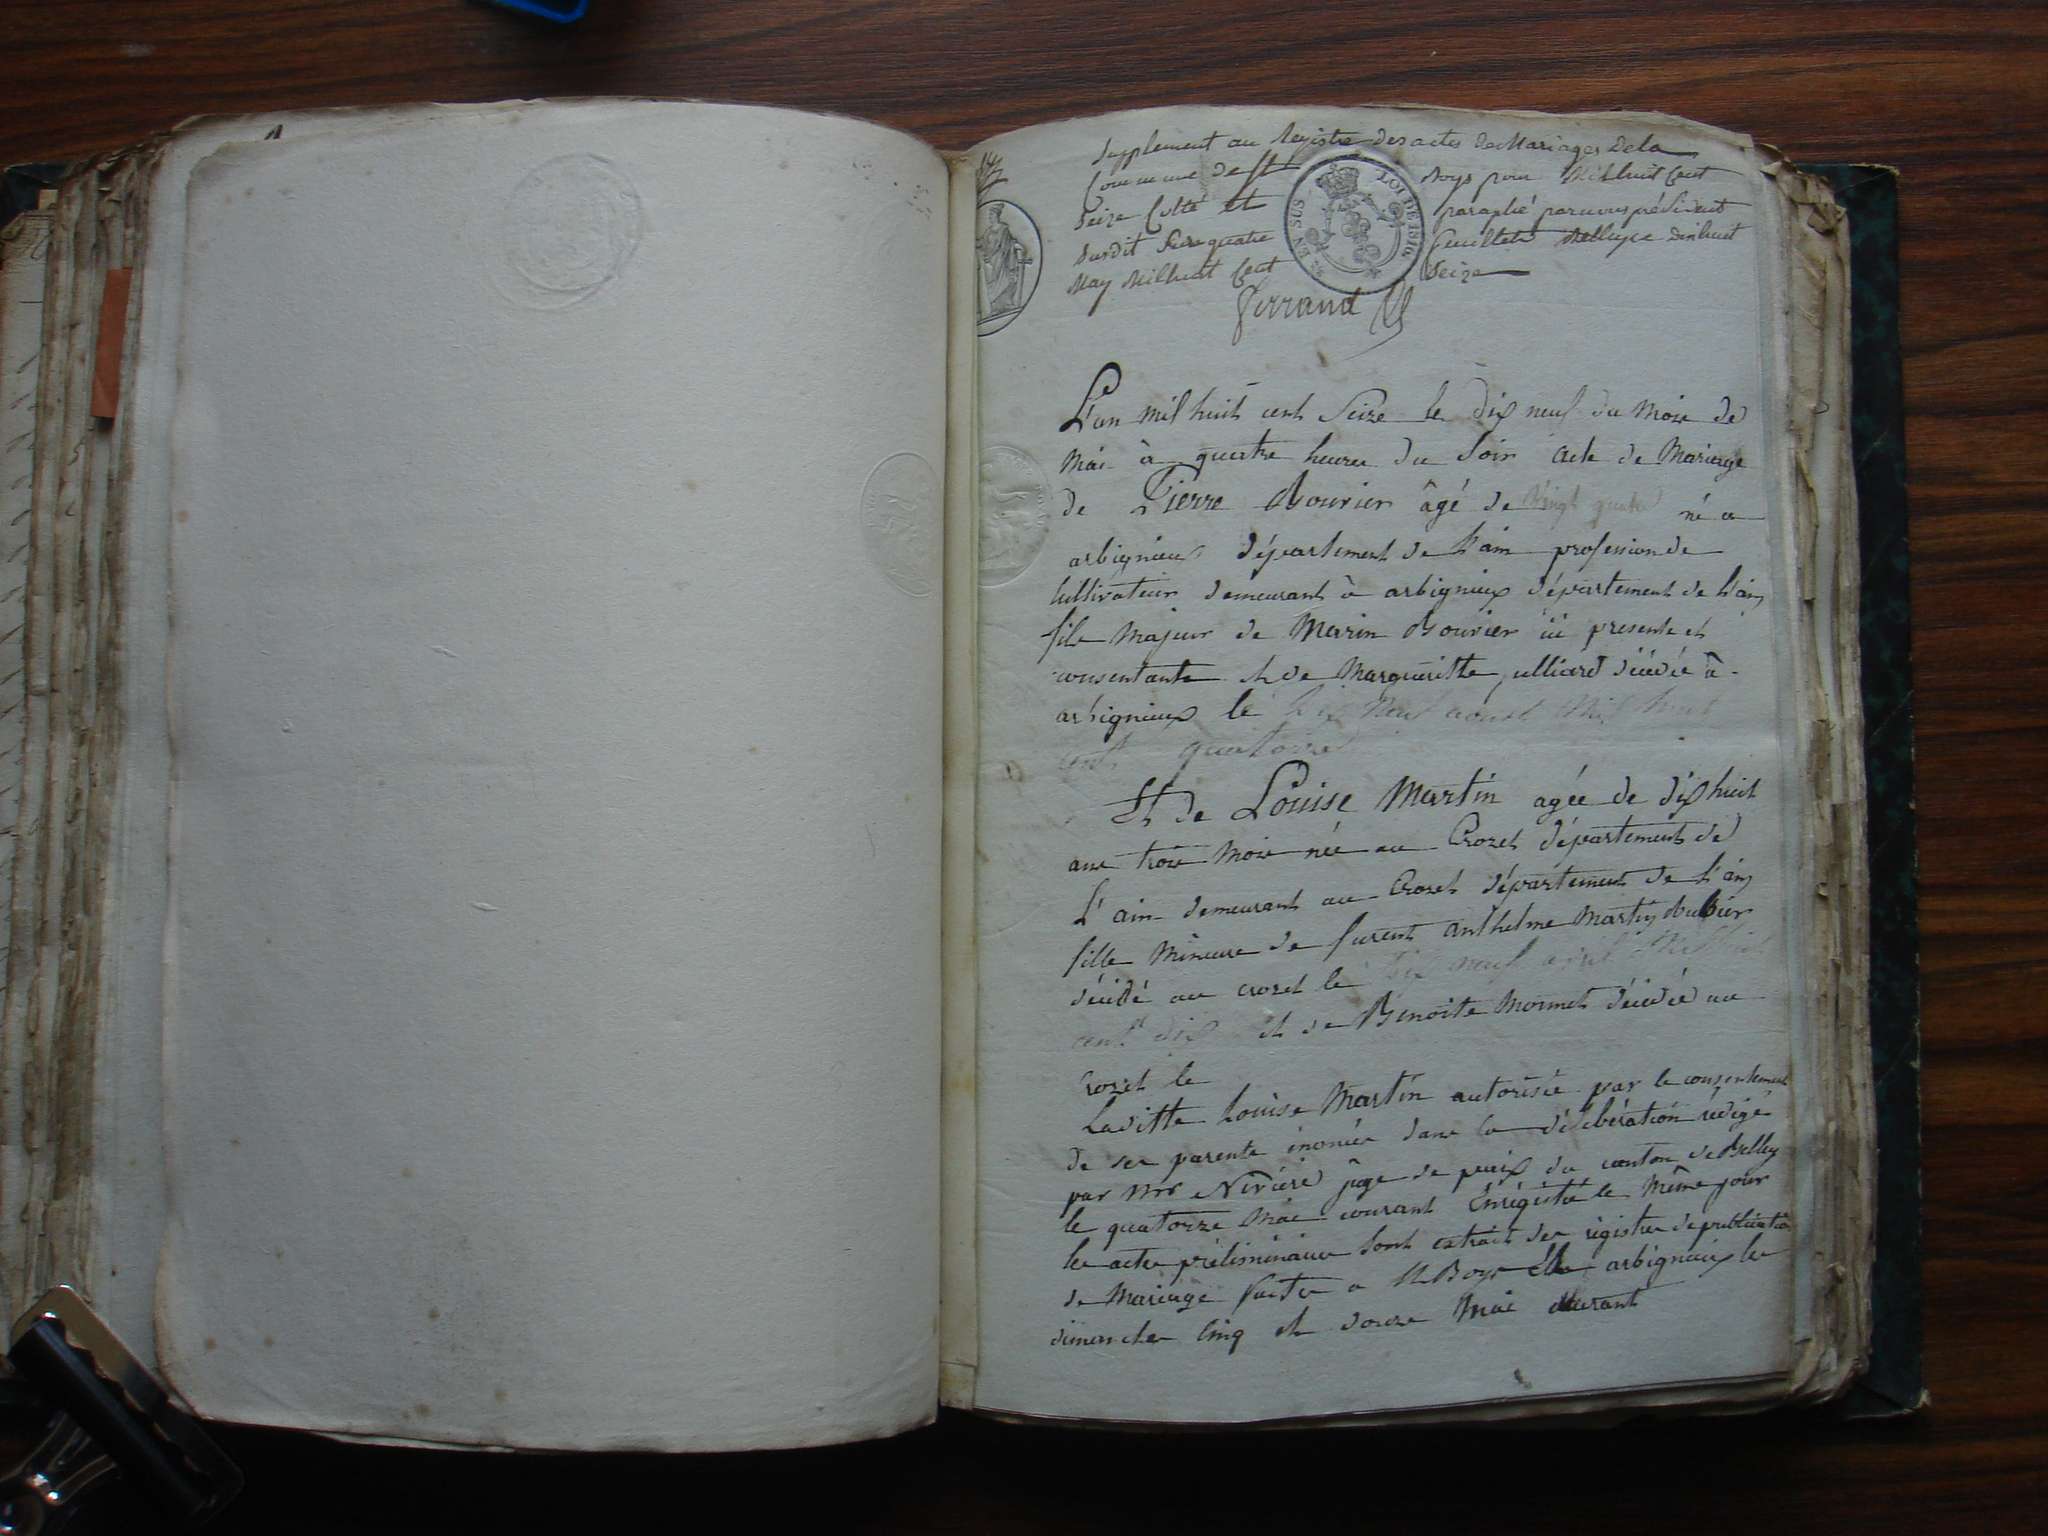 Supplement au Registre des actes de Mariages De la
Commune de St Boys pour Mil huit Cent
Seize Cotté et paraphé par nous président
Susdit Sur quatre feuillets Belley ce dix huit
May Mil huit Cent Seize
Ferrand
TS EN SUS LOI DE 1816
L'an mil huit cent Seize le dix neuf du Mois de
Mai à quatre heures du Soir acte de Mariage
de Pierre Bouvier âgé de Vingt quatre né a
arbignieux département de L'ain profession de
Cultivateur demeurant à arbignieux département de L'ain
fils Majeur de Marin Bouvier ici present et
consentante et de Margueritte julliard décédée à
arbignieux le dix Neuf aoust Mil huit
cent quatorze
Et de Louise Martin agée de dix huit
ans trois Mois née au Crozet département de
L'ain demeurant au Crozet département de L'ain
fille Mineure de furent anthelme Martin
décédé au crozet le dix neuf avril Mil huit
cent dix et de Benoite Monnet décédée au
Crozet le
Laditte Louise Martin autorisée par le consentement
de ses parents énoncés dans la délibération rédigé
par Mr Nivière juge de paix du canton de Belley
le quatorze Mai courant Enrégistré le Même jour
les actes préliminaires Sont extrait des régistres de publication
de Mariage faites a St Boys et a arbignieux les
dimanches Cinq et douze Mai courant